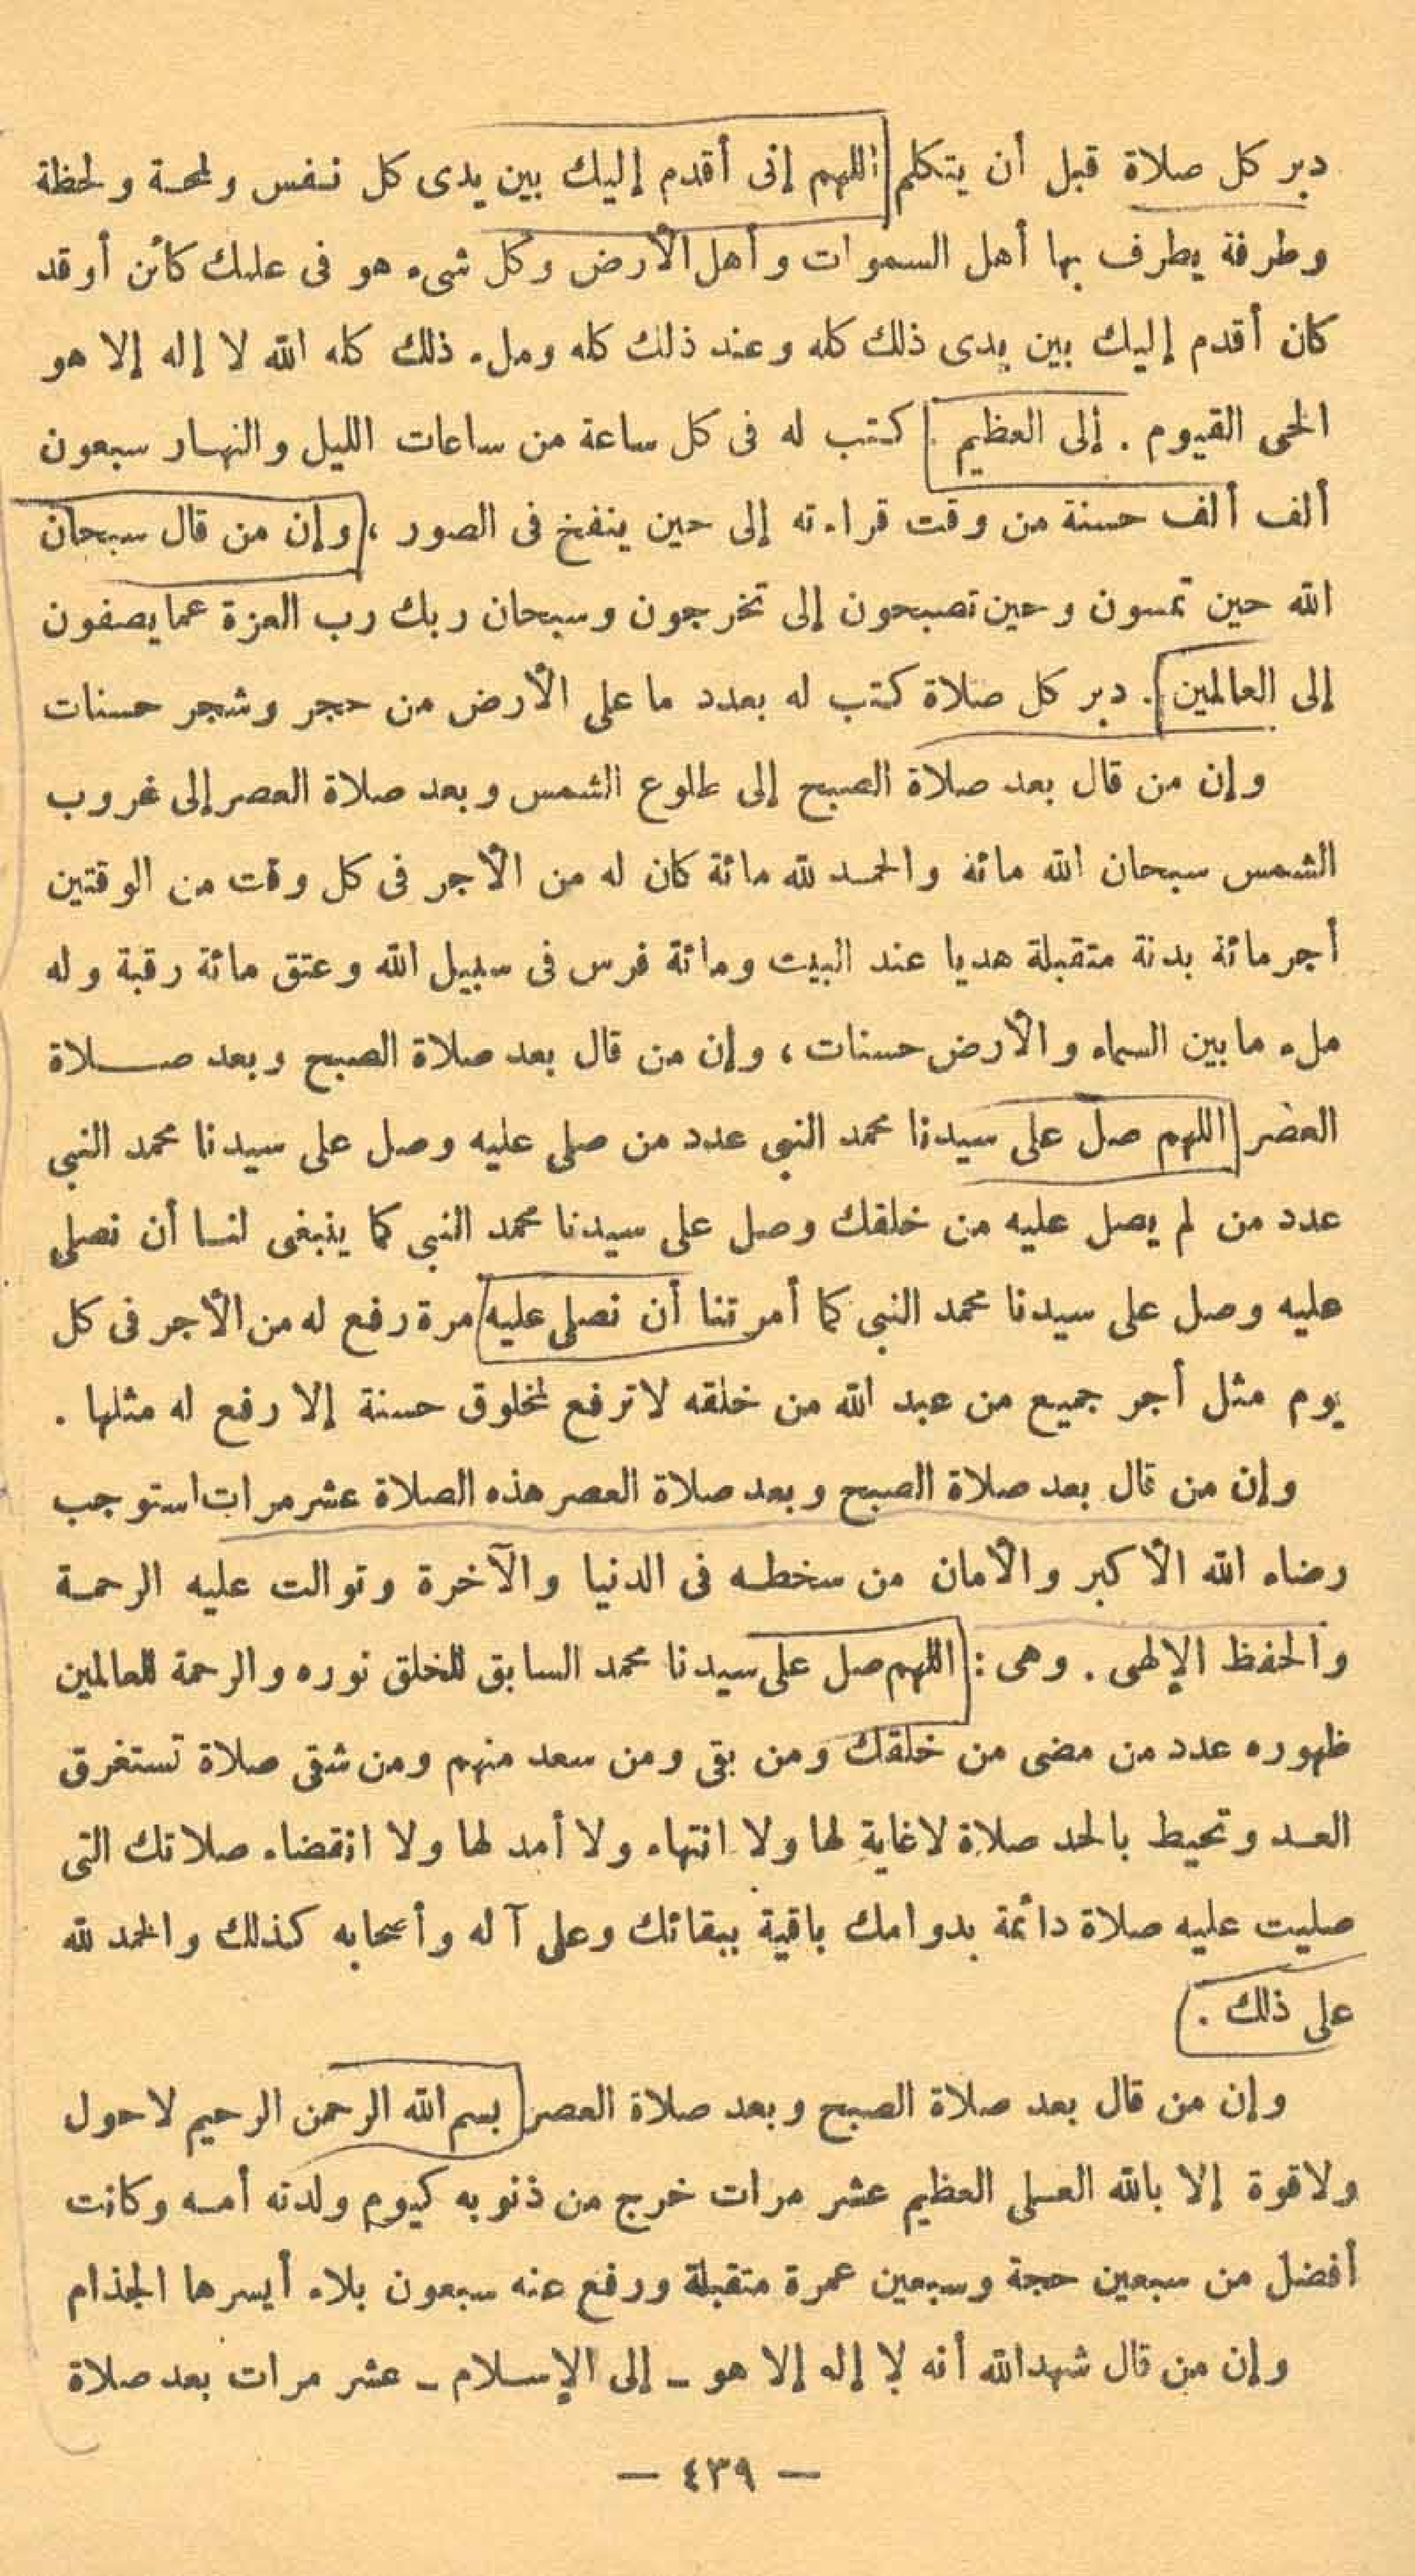 دبر كل صلاة قبل أن يتكلم اللهم إنى أقدم إليك بين يدى كل نفس ولمحة ولحظة
وطرفة يطرف بها أهل السموات وأهل الأرض وكل شىء هو فى علمك كائن أو قد
كان أقدم إليك بين يدى ذلك كله وعند ذلك كله وملء ذلك كله الله لا إله إلا هو
الحى القيوم . إلى العظيم . كتب له فى كل ساعة من ساعات الليل والنهار سبعون
ألف ألف حسنة من وقت قراءته إلى حين ينفخ فى الصور ، وإن من قال سبحان
الله حين تمسون وحين تصبحون إلى تخرجون وسبحان ربك رب العزة عما يصفون
إلى العالمين . دبر كل صلاة كتب له بعدد ما على الأرض من حجر وشجر حسنات
وإن من قال بعد صلاة الصبح إلى طلوع الشمس وبعد صلاة العصر إلى غروب
الشمس سبحان الله مائة والحمد لله مائة كان له من الأجر فى كل وقت من الوقتين
أجر مائة بدنة متقبلة هديا عند البيت ومائة فرس فى سبيل الله وعتق مائة رقبة وله
ملء ما بين السماء والأرض حسنات ، وإن من قال بعد صلاة الصبح وبعد صلاة
العصر اللهم صل على سيدنا محمد النبى عدد من صلى عليه وصل على سيدنا محمد النبي
عدد من لم يصل عليه من خلقك وصل على سيدنا محمد النبي كما ينبغى لنا أن نصلى
عليه وصل على سيدنا محمد النبي كما أمرتنا أن نصلى عليه مرة رفع له من الأجر فى كل
يوم مثل أجر جميع من عبد الله من خلقه لا ترفع لمخلوق حسنة إلا رفع له مثلها .
وإن من قال بعد صلاة الصبح وبعد صلاة العصر هذه الصلاة عشر مرات استوجب
رضاء الله الأكبر والأمان من سخطه فى الدنيا والآخرة وتوالت عليه الرحمة
والحفظ الإلهى . وهى : اللهم صل على سيدنا محمد السابق للخلق نوره والرحمة للعالمين
ظهوره عدد من مضى من خلقك ومن بقى ومن سعد منهم ومن شقى صلاة تستغرق
العد وتحيط بالحد صلاة لا غاية لها ولا انتهاء ولا أمد لها ولا انقضاء صلاتك التى
صليت عليه صلاة دائمة بدوامك باقية ببقائك وعلى آله وأصحابه كذلك والحمد لله
على ذلك .
وإن من قال بعد صلاة الصبح وبعد صلاة العصر بسم الله الرحمن الرحيم لا حول
ولا قوة إلا بالله العلى العظيم عشر مرات خرج من ذنوبه كيوم ولدته أمه وكانت
أفضل من سبعين حجة وسبعين عمرة متقبلة ورفع عنه سبعون بلاء أيسرها الجذام
وإن من قال شهد الله أنه لا إله إلا هو – إلى الإسلام – عشر مرات بعد صلاة
— ٤٣٩ —